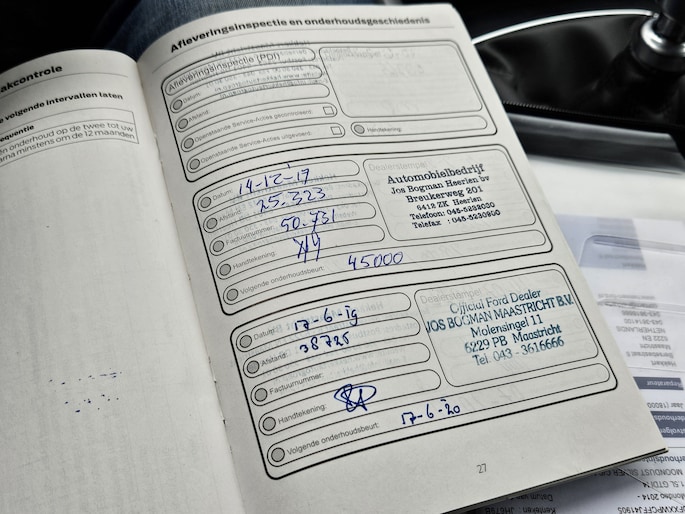 akcontrole
e volgende intervallen laten
equentie
n onderhoud op de twee tot uw
arna minstens om de 12 maanden
Afleveringsinspectie en onderhoudsgeschiedenis
Afleveringsinspectie (PDI)
Datum:
Afstand:
Openstaande Service-Acties gecontroleerd:
Openstaande Service-Acties uitgevoerd:
Handtekening:
Datum: 14-12-17
Afstand: 25.323
Factuurnummer: 50.731
Handtekening:
Volgende onderhoudsbeurt: 45000
Dealerstempel:
Automobielbedrijf
Jos Bogman Heerlen bv
Breukerweg 201
6412 ZK Heerlen
Telefoon: 045-5232030
Telefax : 045-5230900
Datum: 17-6-19
Afstand: 38725
Factuurnummer:
Handtekening:
Volgende onderhoudsbeurt: 17-6-20
Dealerstempel:
Official Ford Dealer
JOS BOGMAN MAASTRICHT B.V.
Molensingel 11
6229 PB Maastricht
Tel. 043 - 3616666
27
NETHERLANDS
MOONDUST SILVER